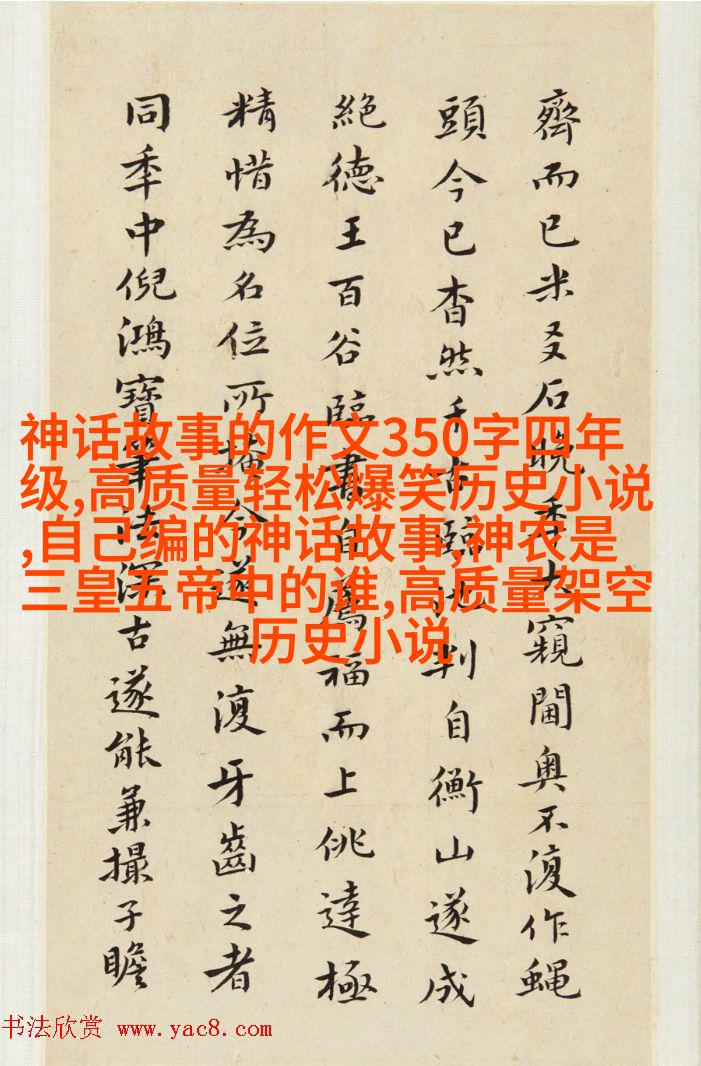 齊而已米友石晚秊大窺閫奧不復作蝇
頭今已杳然千古臨池判自衡山遂成
絕德王百谷臨書自薦福而上佻達極
精惜為名位所掩今遂無復牙齒之者
同秊中倪鴻寶筆法深古遂能兼撮子瞻
神话故事的作文350字四年
级,高质量轻松爆笑历史小说
,自己编的神话故事,神农是
三皇五帝中的谁,高质量架空
历史小说
书法欣赏 www.yac8.com